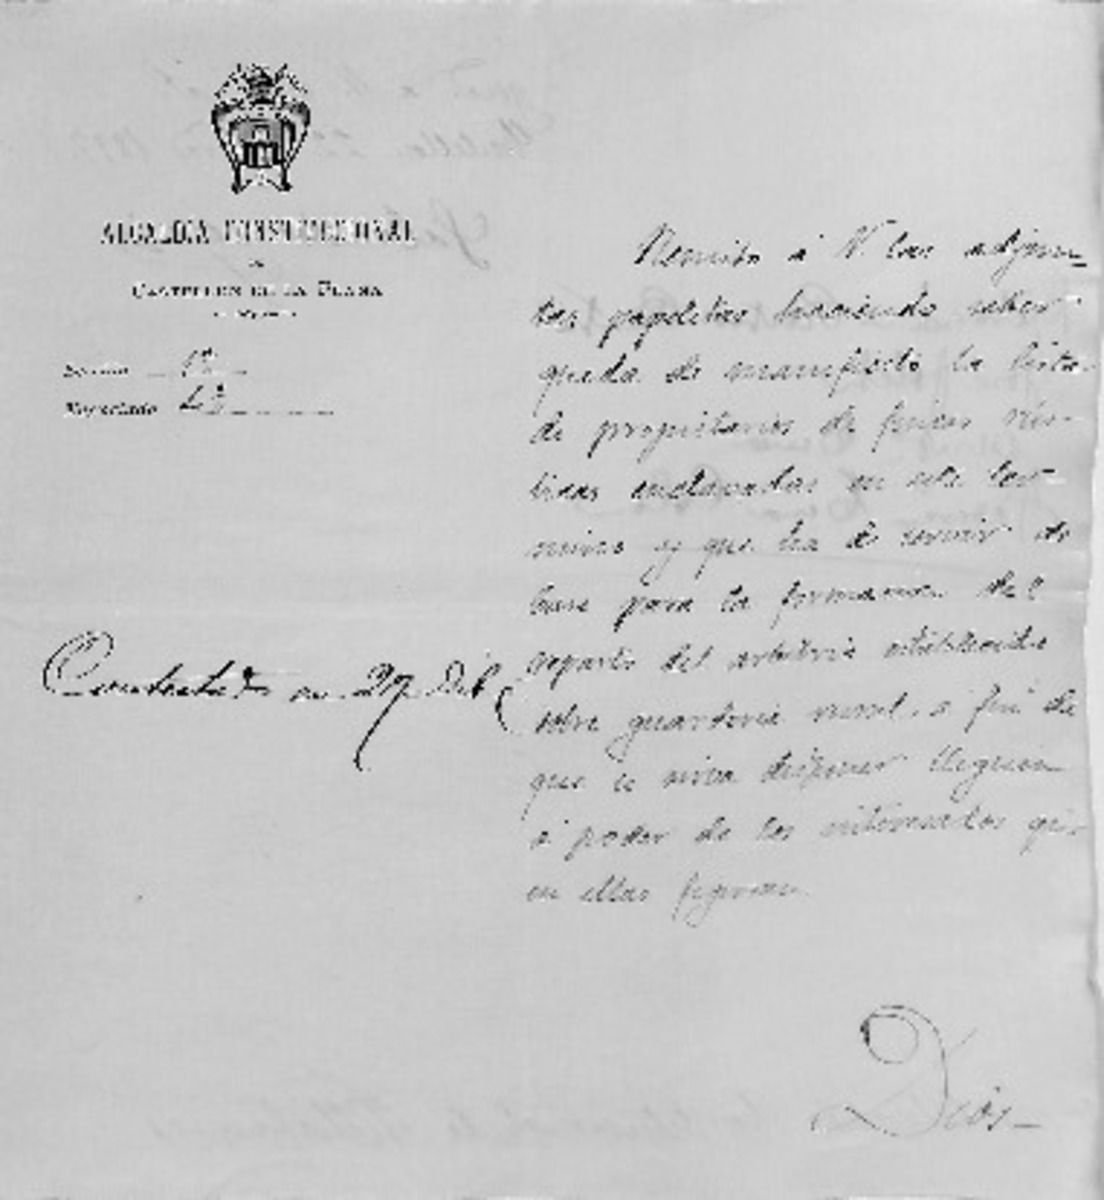 ALCALDIA CONSTITUCIONAL
DE
CASTELLON DE LA PLANA
Sección 1ª
Negociado 4º
Remito á V. las adjun-
tas papeletas haciendo saber
queda de manifiesto la lista
de propietarios de fincas rús-
ticas enclavadas en este tér-
mino y que ha de servir de
base para la formacion del
reparto del arbitrio establecido
sobre guarderia rural, a fin de
que se sirva disponer lleguen
á poder de los interesados que
en ellas figuran.
Contestado en 27 Dib
Dios-